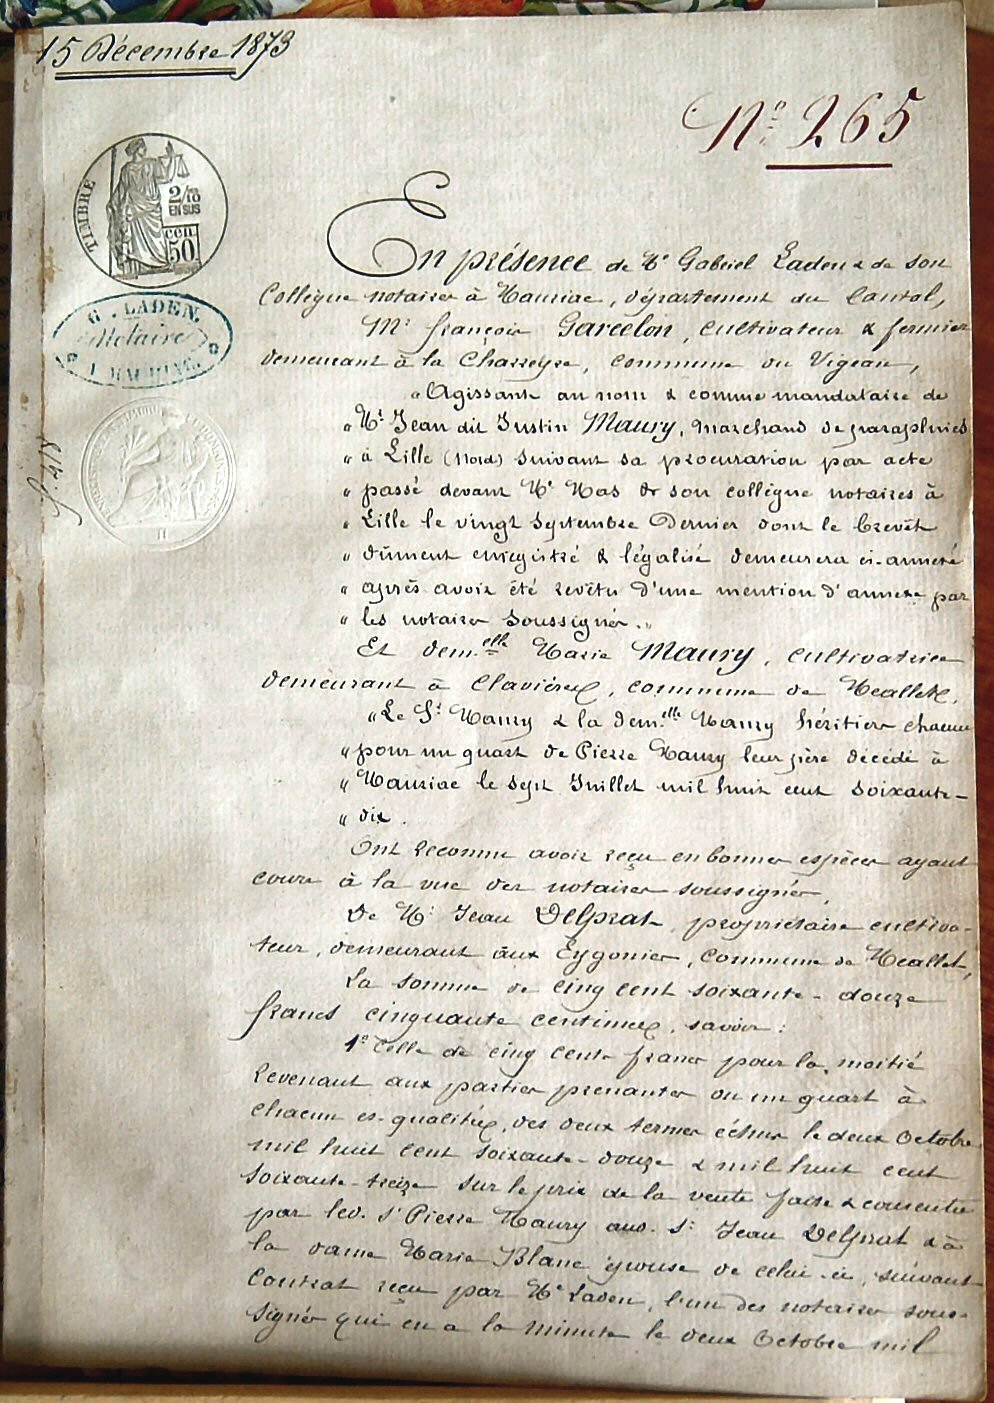 15 Décembre 1873
N° 265
TIMBRE
2/10
EN SUS
cen.
50
G. LADEN.
Notaire
A MAURIAC.
En présence de Me Gabriel Laden & de son
Collègue notaires à Mauriac, département du Cantal,
Mr. françois Garcelon, cultivateur & fermier
demeurant à la Chasseyre, commune du Vigean,
" Agissant au nom & comme mandataire de
" Mr. Jean dit Justin Maury, marchand de parapluies
" à Lille (Nord) suivant sa procuration par acte
" passé devant Me Mas & son collègue notaires à
" Lille le vingt Septembre Dernier dont le brevêt
" dûment enregistré & légalisé demeurera ci-annexé
" après avoir été revêtu d'une mention d'annexe par
" les notaires soussignés. "
Et dem.elle Marie Maury, cultivatrice
demeurant à Clavières, commune de Meallet.
" Le Sr. Maury & la dem.lle Maury héritiers chacun
" pour un quart de Pierre Maury leur père décédé à
" Mauriac le sept Juillet mil huit cent soixante-
" dix.
Ont reconnu avoir reçu en bonnes espèces ayant
cours à la vue des notaires soussignés,
De Mr. Jean Delprat, propriétaire cultiva-
teur, demeurant aux Eygonies, commune de Meallet,
La somme de cinq cent soixante-douze
francs cinquante centimes, savoir:
1° Celle de cinq cents francs pour la moitié
revenant aux parties prenantes ou un quart à
chacun es-qualités, des deux termes échus le deux Octobre
mil huit cent soixante-douze & mil huit cent
soixante-treize sur le prix de la vente faite & consentie
par led. Sr Pierre Maury aud. Sr. Jean Delprat & à
la dame Marie Blanc épouse de celui-ci, suivant
contrat reçu par Me Laden, l'un des notaires sous-
signés qui en a la minute le deux Octobre mil